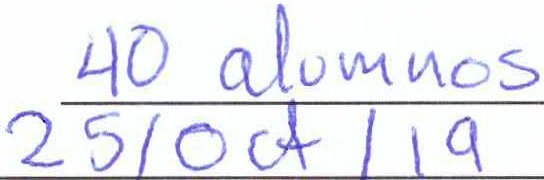 40 alumnos
25/Oct/19